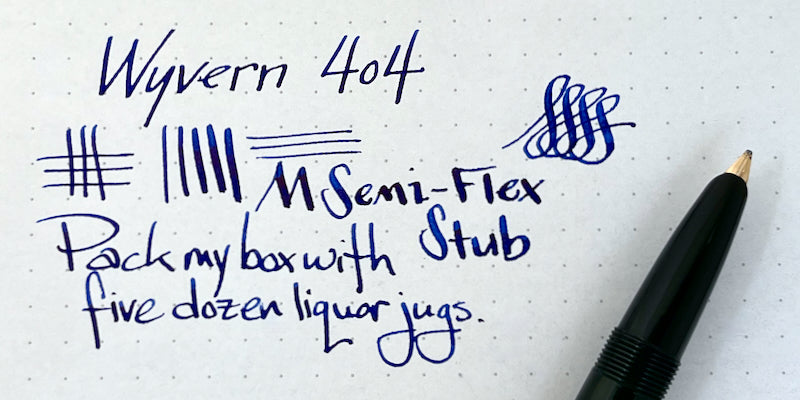 Wyvern 404
M Semi-Flex
Stub
Pack my box with
five dozen liquor jugs.